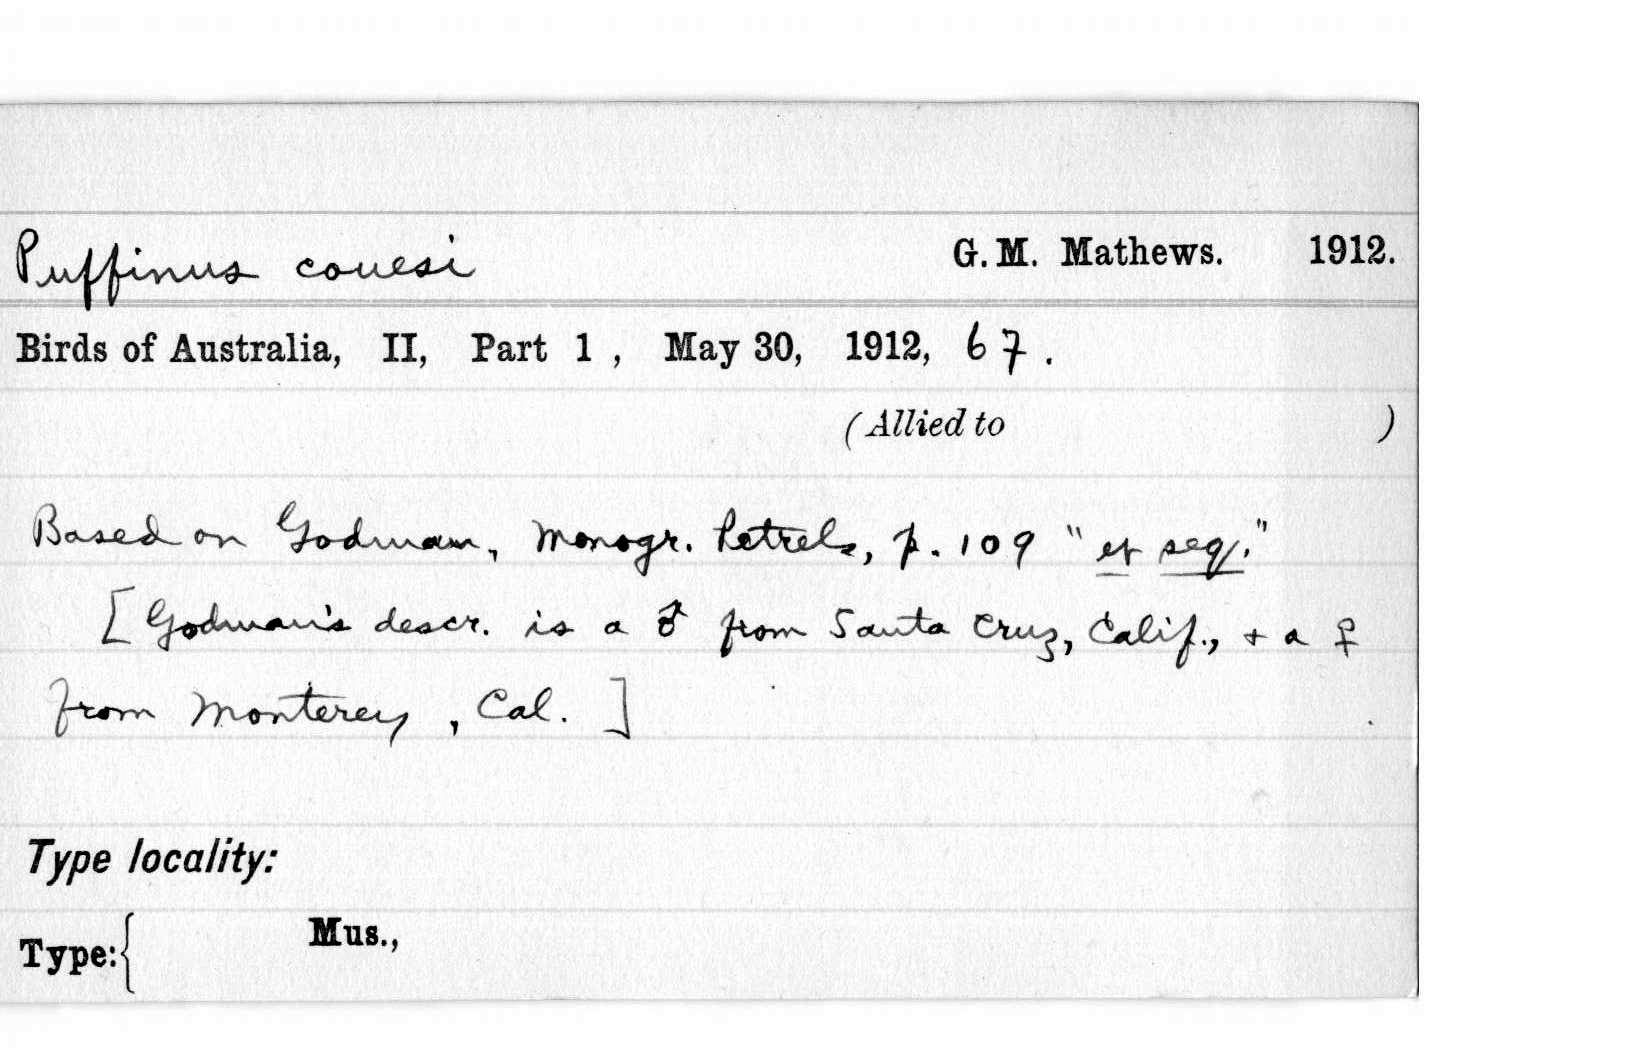 Puffinus couesi G. M. Mathews. 1912.
Birds of Australia, II, Part 1 , May 30, 1912, 67.
(Allied to )
Based on Godman, Monogr. Petrels, p. 109 "et seq."
[Godman's descr. is a ♂ from Santa Cruz, Calif., + a ♀
from Monterey, Cal. ]
Type locality:
Type:{ Mus.,